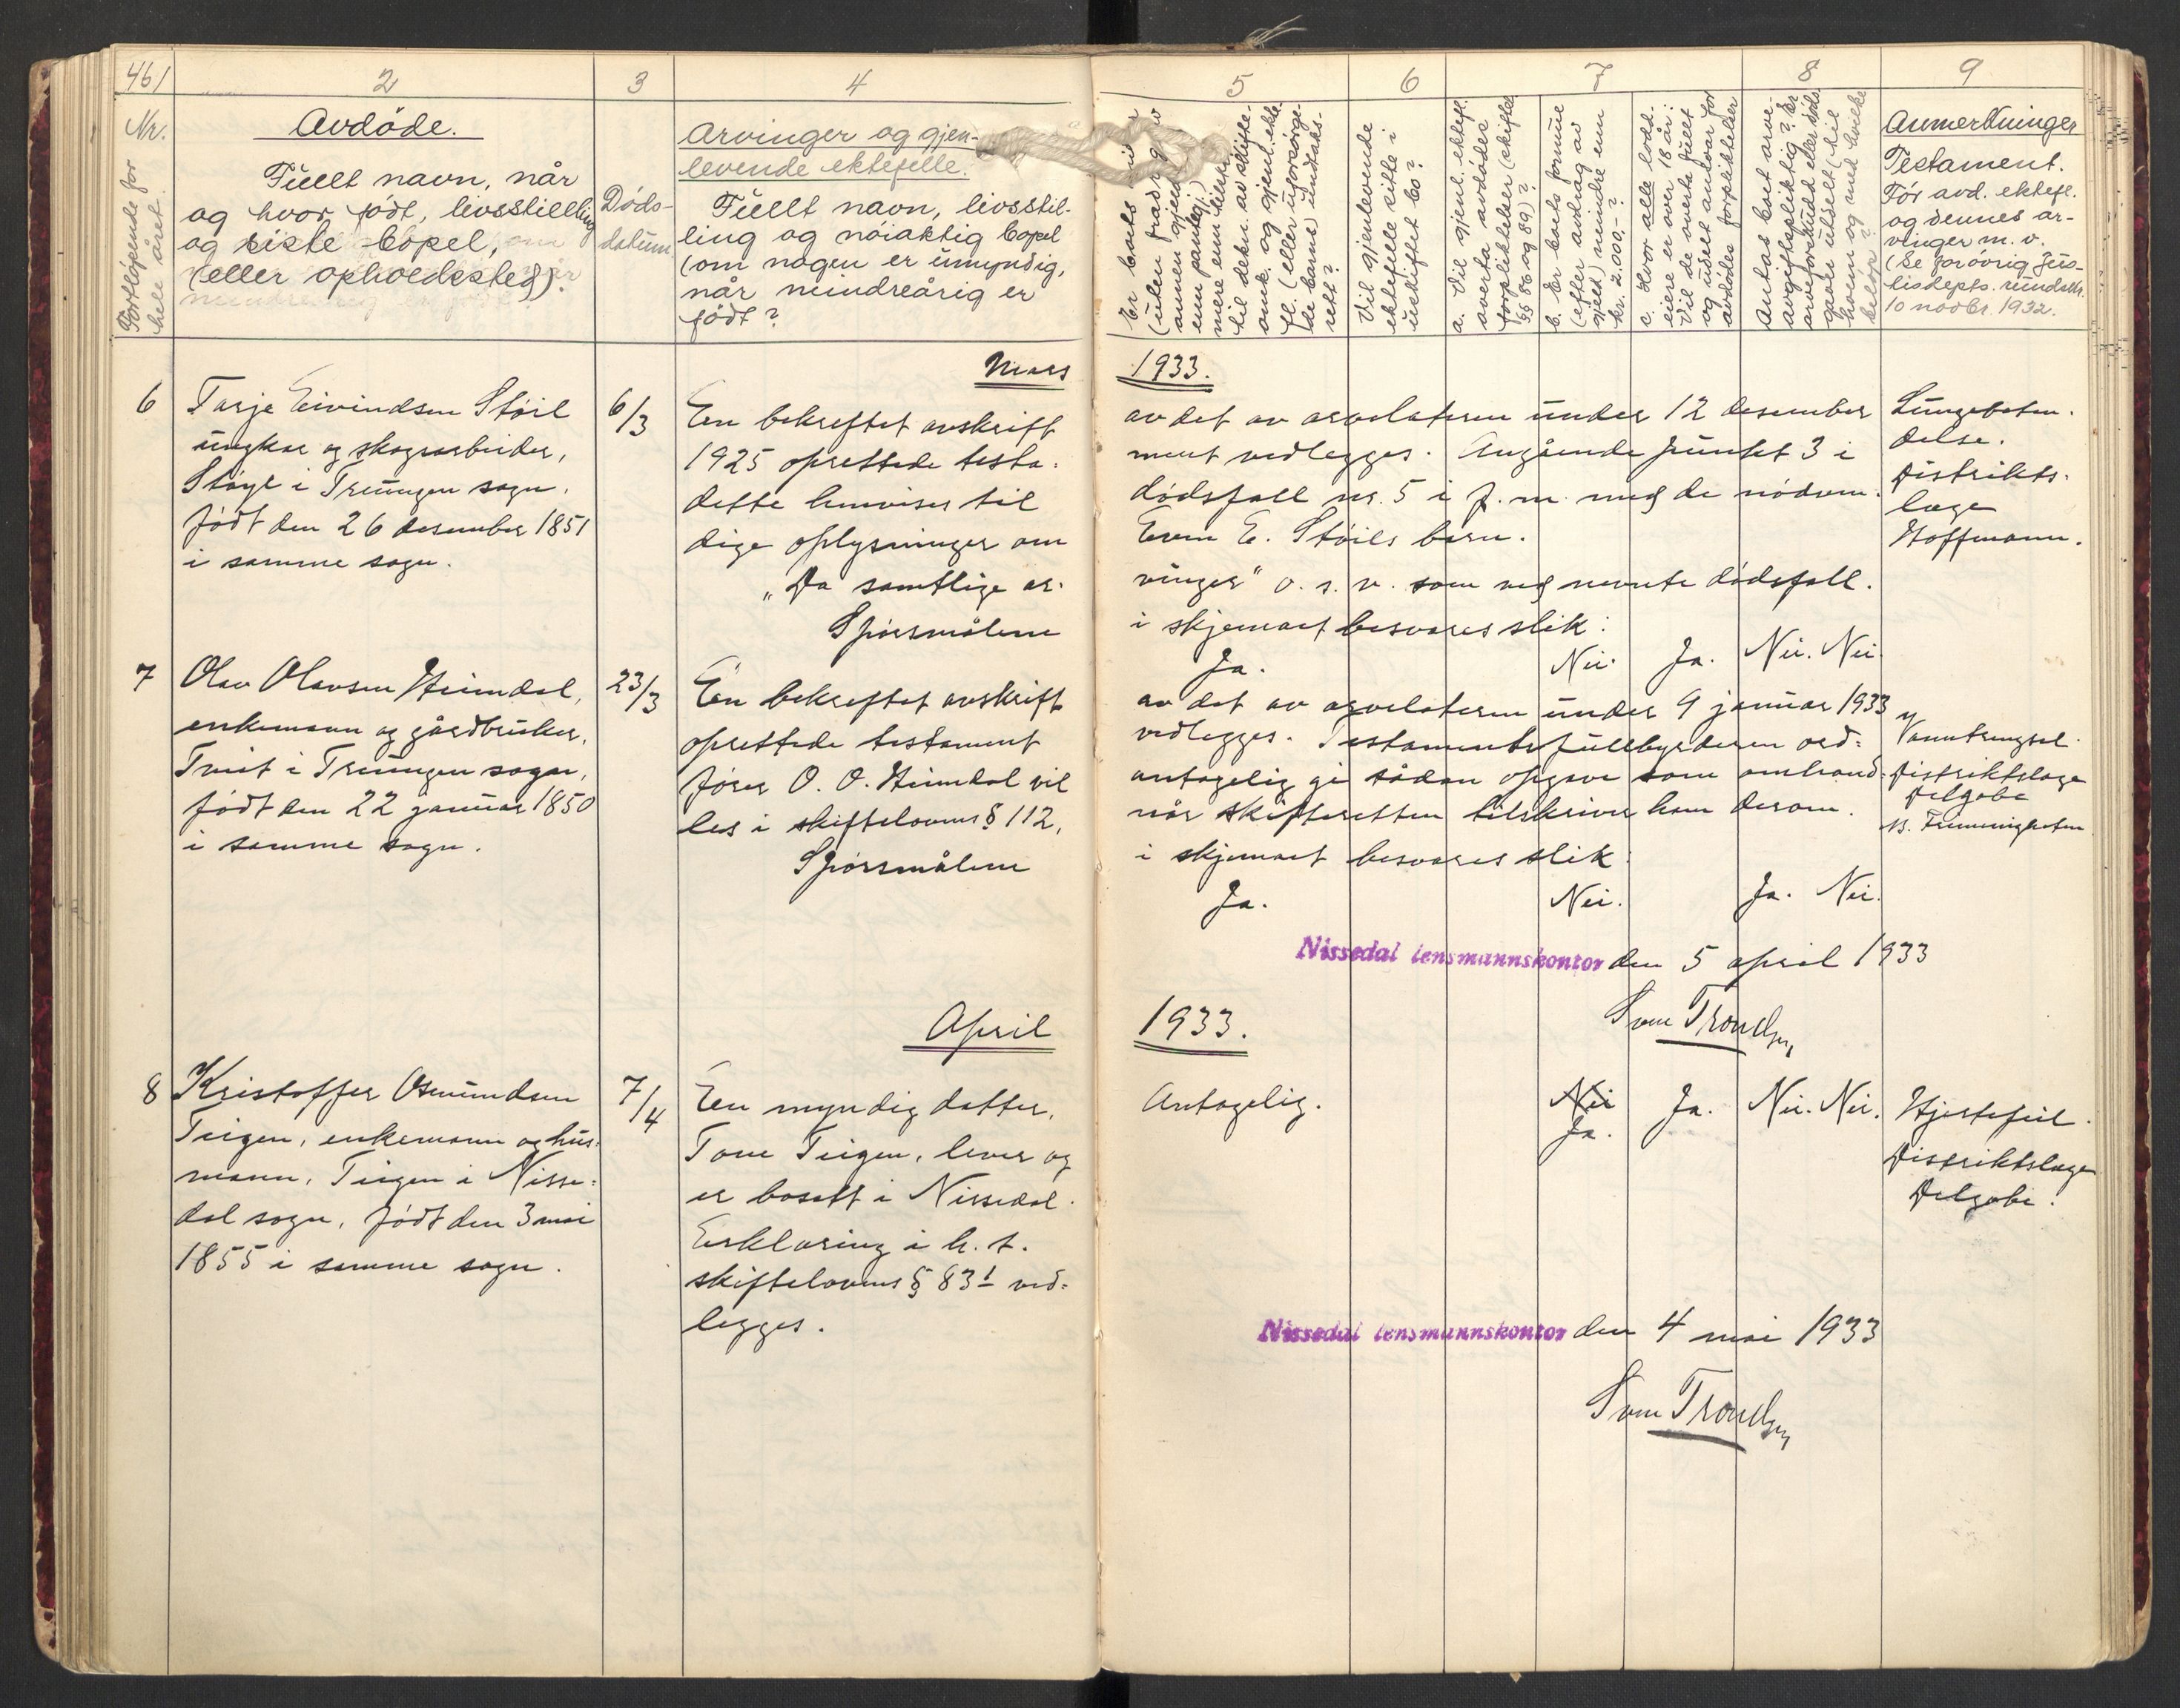 461
2
3
4
5
6
7
8
9
Nr.
Fortløpende for
hele året.
Avdøde.
Fullt navn, når
og hvor født, livsstilling
og siste bopel,
(eller opholdssted).
Døds-
datum
Arvinger og gjen-
levende ektefelle.
Fullt navn, livsstil-
ling og nøiaktig bopel
(om nogen er umyndig,
når mindreårig er
født?
Er boets
(uten fradrag av
annen gjeld
enn pantegj.)
mere enn tilstr.
til dekn. av skifte-
omk. og gjenl. ekte-
fl. (eller uforsørge-
de barns) undtaks-
rett?
Vil gjenlevende
ektefelle sitte i
uskiftet bo?
a. Vil gjenl. ektefl.
overta avdødes
forpliktelser (skiftel.
§§ 86 og 89)?
b. Er boets formue
(efter avdrag av
gjeld) mindre enn
kr. 2.000,-?
c. Hvor alle lodd-
eiere er over 18 år:
Vil de overta fullt
og udelt ansvar for
avdødes forpliktelser
Antas boet arve-
avgiftspliktig? Er
arveforskudd eller døds-
gaver utdelt (til
hvem og med hvilke
beløp?
Anmerkninger
Testament.
Før avd. ektefl.
og dennes ar-
vinger m. v.
(Se forøvrig Jus-
tisdepts. rundskr.
10 novbr. 1932.
Mars
1933.
6
Tarje Eivindsen Støil
ungkar og skogsarbeider,
Støyl i Treungen sogn,
født den 26 desember 1851
i samme sogn.
6/3
En bekreftet avskrift
av det av arvelateren under 12 desember
1925 oprettede testa-
ment vedlegges. Angående punkt 3 i
dette henvises til
dødsfall nr. 5 i f. m. med de nødven-
dige oplysninger om
Even E. Støils barn.
„Da samtlige ar-
vinger" o. s. v. som ved nevnte dødsfall.
Spørsmålene
i skjemaet besvares slik:
Ja.
Nei.
Ja.
Nei. Nei.
Lungebeten-
delse.
Distrikts-
læge
Hoffmann.
7
Olav Olavsen Heimdal,
enkemann og gårdbruker,
Tveit i Treungen sogn,
født den 22 januar 1850
i samme sogn.
23/3
En bekreftet avskrift
av det av arvelateren under 9 januar 1933
oprettede testament
vedlegges. Testamentsfullbyrderen ord-
fører O. O. Heimdal vil
antagelig gi sådan opgave som omhand-
les i skiftelovens § 112,
når skifteretten tilskriver ham derom.
Spørsmålene
i skjemaet besvares slik:
Ja.
Nei.
Ja. Nei.
Vanntrengsel.
Distriktslæge
Delgobe
Nissedal lensmannskontor den 5 april 1933
Sven Trondsen
April
1933.
8
Kristoffer Osmundsen
Teigen, enkemann og hus-
mann, Teigen i Nisse-
dal sogn, født den 3 mai
1855 i samme sogn.
7/4
En myndig datter,
Tone Teigen, lever og
er bosatt i Nissedal.
Erklæring i h. t.
skiftelovens § 83¹ ved-
legges.
Antagelig.
Nei
Ja.
Ja.
Nei. Nei.
Hjertefeil.
Distriktslæge
Delgobe.
Nissedal lensmannskontor den 4 mai 1933
Sven Trondsen